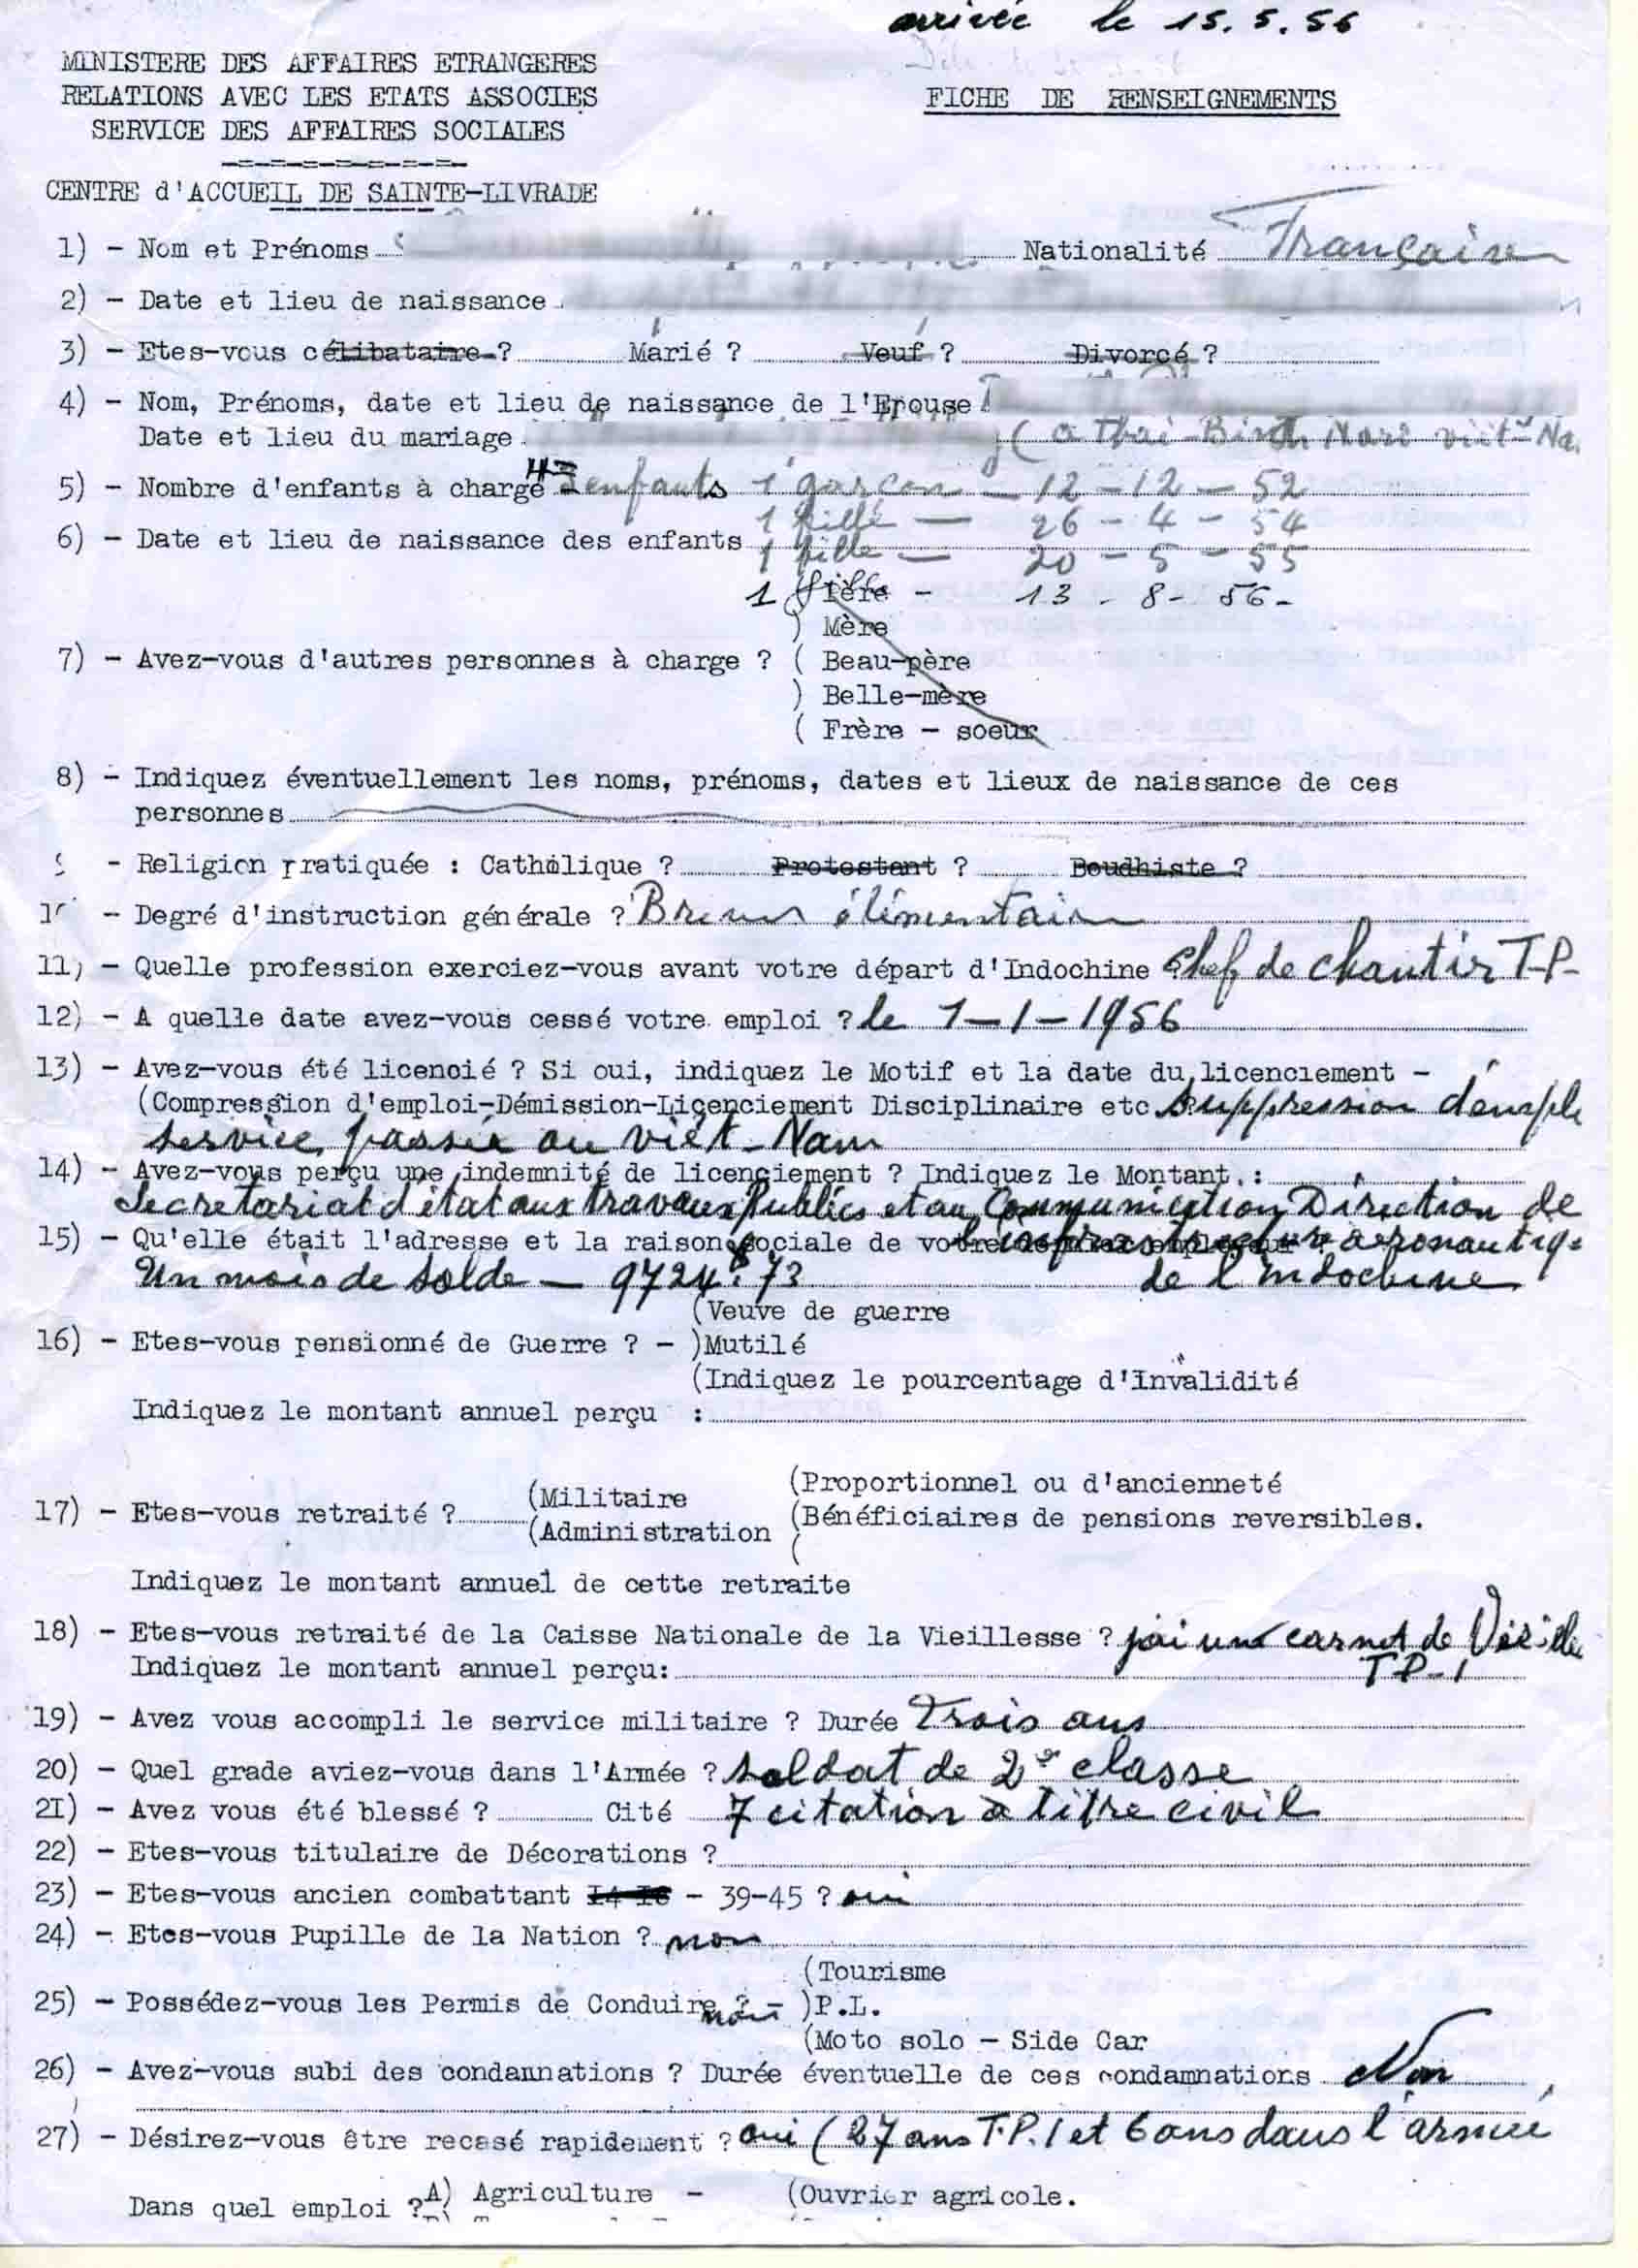 arrivée le 15.5.56
MINISTERE DES AFFAIRES ETRANGERES
RELATIONS AVEC LES ETATS ASSOCIES
SERVICE DES AFFAIRES SOCIALES
FICHE DE RENSEIGNEMENTS
CENTRE d'ACCUEIL DE SAINTE-LIVRADE
1) - Nom et Prénoms Nationalité Française
2) - Date et lieu de naissance
3) - Etes-vous célibataire ? Marié ? Veuf ? Divorcé ?
4) - Nom, Prénoms, date et lieu de naissance de l'Epouse
Date et lieu du mariage (à Thai-Binh Nord viêt Na.
5) - Nombre d'enfants à charge 4 enfants 1 garçon - 12 - 12 - 52
1 fille - 26 - 4 - 54
6) - Date et lieu de naissance des enfants 1 fille - 20 - 5 - 55
1 fille - 13 - 8 - 56 -
( Père
) Mère
7) - Avez-vous d'autres personnes à charge ? ( Beau-père
) Belle-mère
( Frère - soeur
8) - Indiquez éventuellement les noms, prénoms, dates et lieux de naissance de ces
personnes
- Religion pratiquée : Catholique ? Protestant ? Boudhiste ?
- Degré d'instruction générale ? élémentaire
11) - Quelle profession exerciez-vous avant votre départ d'Indochine Chef de chantier T-P-
12) - A quelle date avez-vous cessé votre emploi ? le 1-1-1956
13) - Avez-vous été licencié ? Si oui, indiquez le Motif et la date du licenciement -
(Compression d'emploi-Démission-Licenciement Disciplinaire etc Suppression d'emploi
service passé au viêt-Nam
14) - Avez-vous perçu une indemnité de licenciement ? Indiquez le Montant. :
Secretariat d'état aux travaux Publics et au Communication Direction de
15) - Qu'elle était l'adresse et la raison sociale de votre dernier employeur ? l'infrastructure aéronautiq.
Un mois de solde - 9724$73 de l'indochine
(Veuve de guerre
16) - Etes-vous pensionné de Guerre ? - )Mutilé
(Indiquez le pourcentage d'Invalidité
Indiquez le montant annuel perçu :
(Proportionnel ou d'ancienneté
(Militaire
17) - Etes-vous retraité ? (Bénéficiaires de pensions reversibles.
(Administration (
Indiquez le montant annuel de cette retraite
18) - Etes-vous retraité de la Caisse Nationale de la Vieillesse ? j'ai un carnet de
Indiquez le montant annuel perçu: T P-1
19) - Avez vous accompli le service militaire ? Durée Trois ans
20) - Quel grade aviez-vous dans l'Armée ? soldat de 2e classe
21) - Avez vous été blessé ? Cité 7 citation à titre civil
22) - Etes-vous titulaire de Décorations ?
23) - Etes-vous ancien combattant 14-18 - 39-45 ? oui
24) - Etes-vous Pupille de la Nation ? non
(Tourisme
25) - Possédez-vous les Permis de Conduire ? - non )P.L.
(Moto solo - Side Car
26) - Avez-vous subi des condamnations ? Durée éventuelle de ces condamnations Non
27) - Désirez-vous être recasé rapidement ? oui (27 ans T.P. / et 6 ans dans l'armée
Dans quel emploi ? A) Agriculture - (Ouvrier agricole.